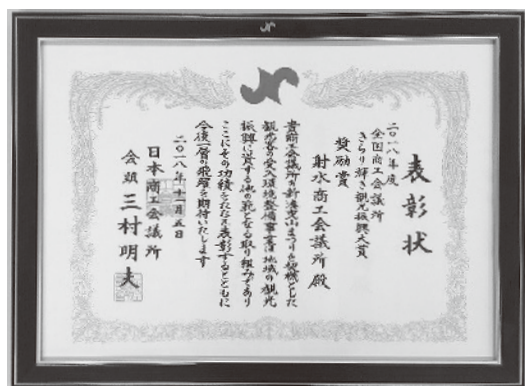 表彰状
二〇一八年度
全国商工会議所
きらり輝き観光振興大賞
奨励賞
射水商工会議所 殿
貴商工会議所の新湊曳山まつりを契機とした
観光客の受入環境整備事業は地域の観光
振興に資する他の範となる取り組みであり
ここにその功績をたたえ表彰するとともに
今後一層の飛躍を期待いたします
二〇一八年十一月五日
日本商工会議所
会頭 三村明夫